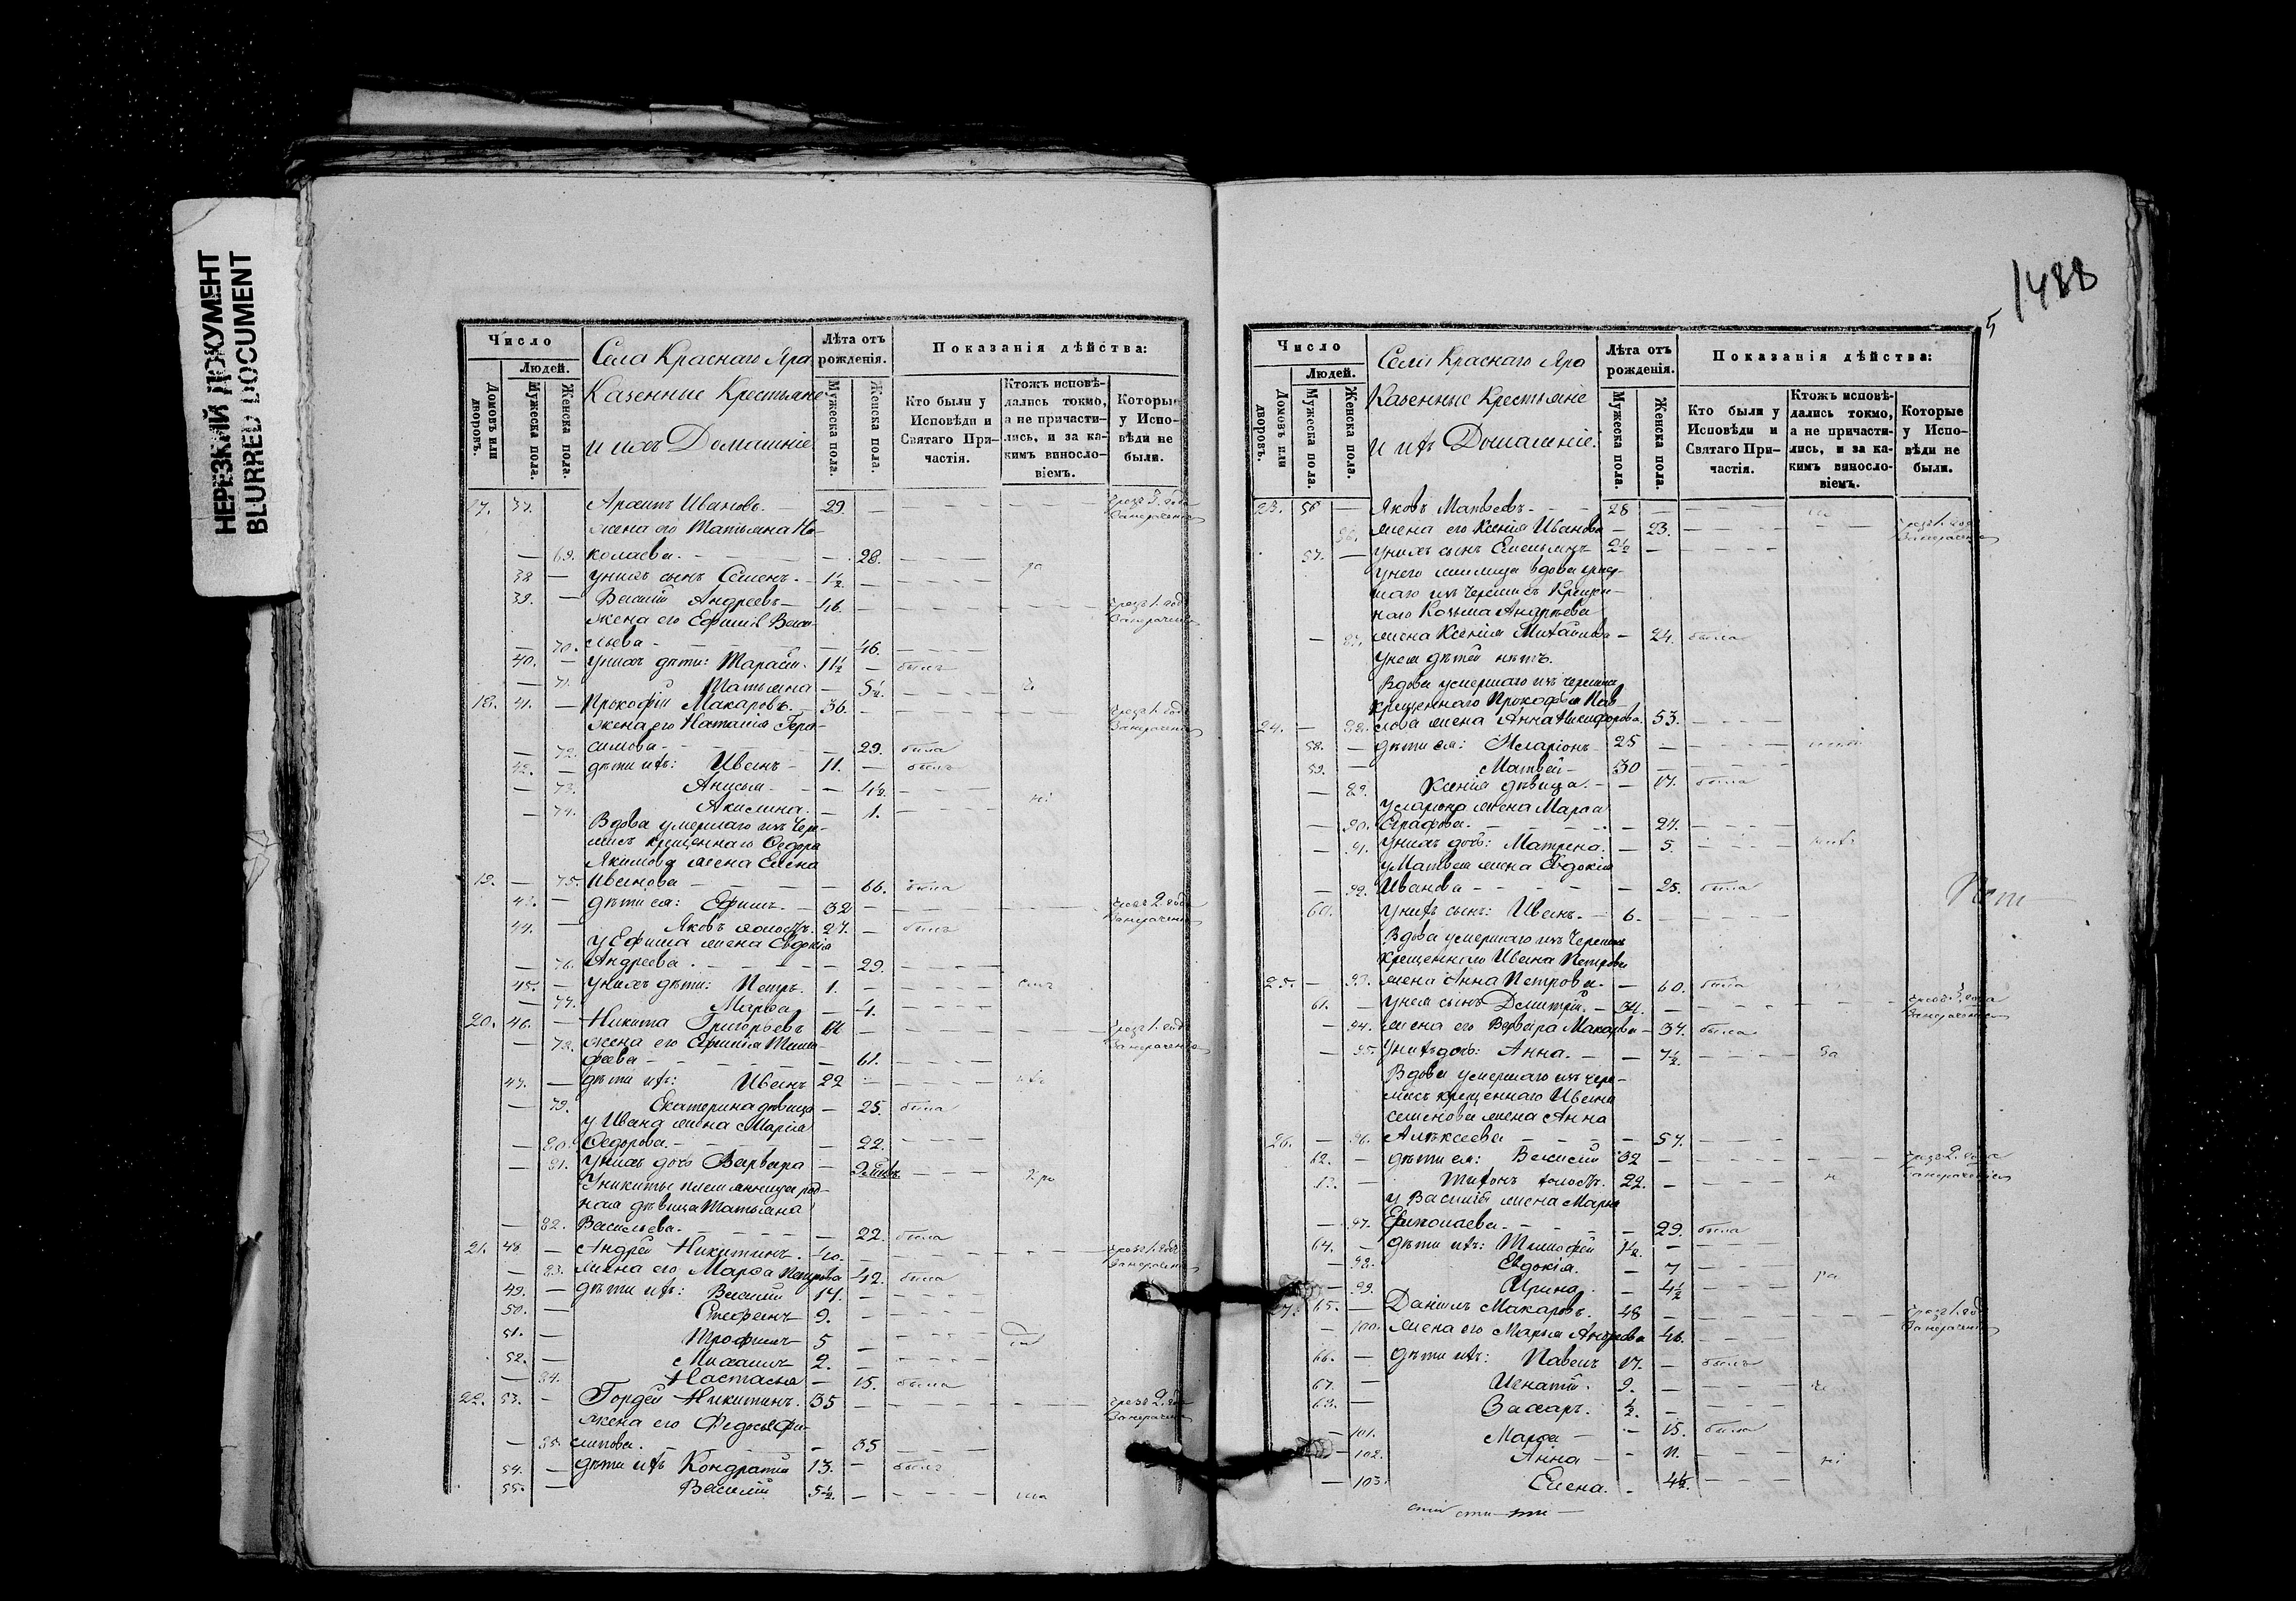 НЕРЕЗКИЙ ДОКУМЕНТ
BLURRED DOCUMENT
Число
Людей.
Домовъ или дворовъ.
Мужеска пола.
Женска пола.
Села Краснаго Яра
Казенные Крестьяне
и ихъ Домашніе
Лѣта отъ рожденія.
Мужеска пола.
Женска пола.
Показанія дѣйства:
Кто были у Исповѣди и Святаго Причастія.
Ктожъ исповѣдались токмо, а не причастились, и за какимъ винословіемъ.
Которые у Исповѣди не были.
17. 37. Ивановъ. — 29. —
жена его Татьяна Ни-
— 69. колаева. — 28.
38 — у нихъ сынъ Семенъ. — 1½ —
39. — Василій Андреевъ — 46. — чрезъ 1. годъ
жена его Васи-
— 70. льева — 46.
40. — у нихъ дѣти: Тарасій. 11½ — былъ
— 71. Татьяна — 5½.
18. 41. — Прокофій Макаровъ. — 36. — чрезъ 1. годъ
жена его Наталія Гера-
— 72. симова — 29. была
42. — дѣти ихъ: Иванъ — 11. — былъ
— 73. Анисья — 4½.
— 74. Акилина. — 1.
Вдова умершаго изъ Чере-
мисъ крещеннаго Ѳедора
Якимова жена Елена
19. — 75. Иванова — 66. была
43. — дѣти ея: Ефимъ. — 32 — чрезъ 2. года
44. — Яковъ холостъ. 27. — былъ
у Ефима жена Евдокія
— 76. Андреева. — 29.
45. — у нихъ дѣти: Петръ. 1. —
— 77. Марѳа — 4.
20. 46. — Никита Григорьевъ — чрезъ 1. годъ
— 78. жена его Тимо-
феева — 61.
47. — дѣти ихъ: Иванъ 22 —
— 79. Екатерина дѣвица — 25. была
у Ивана жена Марія
— 80. Ѳедорова. — 22.
— 81. у нихъ дочь Варвара —
У Никиты племянница род-
ная дѣвица Татьяна
— 82. Васильева. — 22. была
21. 48 — Андрей Никитинъ. 40. — чрезъ 1. годъ
— 83. жена его Марѳа Петрова 42. была
49. — дѣти ихъ: Василій 14. —
50. — Стефанъ 9. —
51. — Трофимъ 5 —
52. — Михаилъ 2. —
— 84. Настасья — 15. была
22. 53. — Гордей Никитинъ. 35 — чрезъ 2. года
жена его Федосья Фи-
— 85. липова. — 35
54. — дѣти ихъ Кондратій 13. — былъ
55. — Василій 5½. —
1488
5
Число
Людей.
Домовъ или дворовъ.
Мужеска пола.
Женска пола.
Села Краснаго Яра
Казенные Крестьяне
и ихъ Домашніе.
Лѣта отъ рожденія.
Мужеска пола.
Женска пола.
Показанія дѣйства:
Кто были у Исповѣди и Святаго Причастія.
Ктожъ исповѣдались токмо, а не причастились, и за какимъ винословіемъ.
Которые у Исповѣди не были.
23. 56 — Яковъ Матвѣевъ — 28 —
86. жена его Ксенія Иванова — 23. — чрезъ 1. годъ
57. — у нихъ сынъ Емельянъ 2½ —
у него вдова умер-
шаго изъ Черемисъ Крещен-
наго Козьма Андреева
— 87. жена Ксенія Михайлова — 24. была
у нея дѣтей нѣтъ.
Вдова умершаго изъ черемисъ
крещеннаго Прокофья Пав-
24. — 88. лова жена Анна Никифорова. 53.
58. — дѣти ея: Иларіонъ — 25 —
59. — Матвѣй — 30 —
— 89. Ксенія дѣвица. — 17. была
у Иларіона жена Марѳа
— 90. — 27.
— 91. у нихъ дочь: Матрена. — 5.
у Матвея жена Евдокія
— 92. Иванова — 25. была
60. у нихъ сынъ: Иванъ. — 6. —
Вдова умершаго изъ Черемисъ
крещеннаго Ивана Петрова
25. — 93. жена Анна Петрова. — 60. была
61. — у нея сынъ Дмитрій. — 34. —
— 94. жена его Варвара Макарова — 34. была
— 95. у нихъ дочь: Анна. — 7½.
Вдова умершаго изъ чере-
мисъ крещеннаго Ивана
Семенова жена Анна
26. — 96. Алексеева — 57.
62. — дѣти ея: Василій 32 — чрезъ 2. года
63. — Тихонъ холостъ. 22. —
у Василія жена Марья
— 97. Ермолаева. — 29. была
64. — дѣти ихъ: Тимофей 1½. —
— 98. Евдокія. — 7
— 99. Ирина. — 4½
27. 65. — Даніилъ Макаровъ. 48 — чрезъ 1. годъ
— 100. жена его Марья 46.
66. — дѣти ихъ: Павелъ 17. — былъ
67. — Игнатій. 9. —
68. — Захаръ. ½. —
— 101. Марѳа — 15. была
— 102. Анна — 11.
— 103. Елена. — 4½.